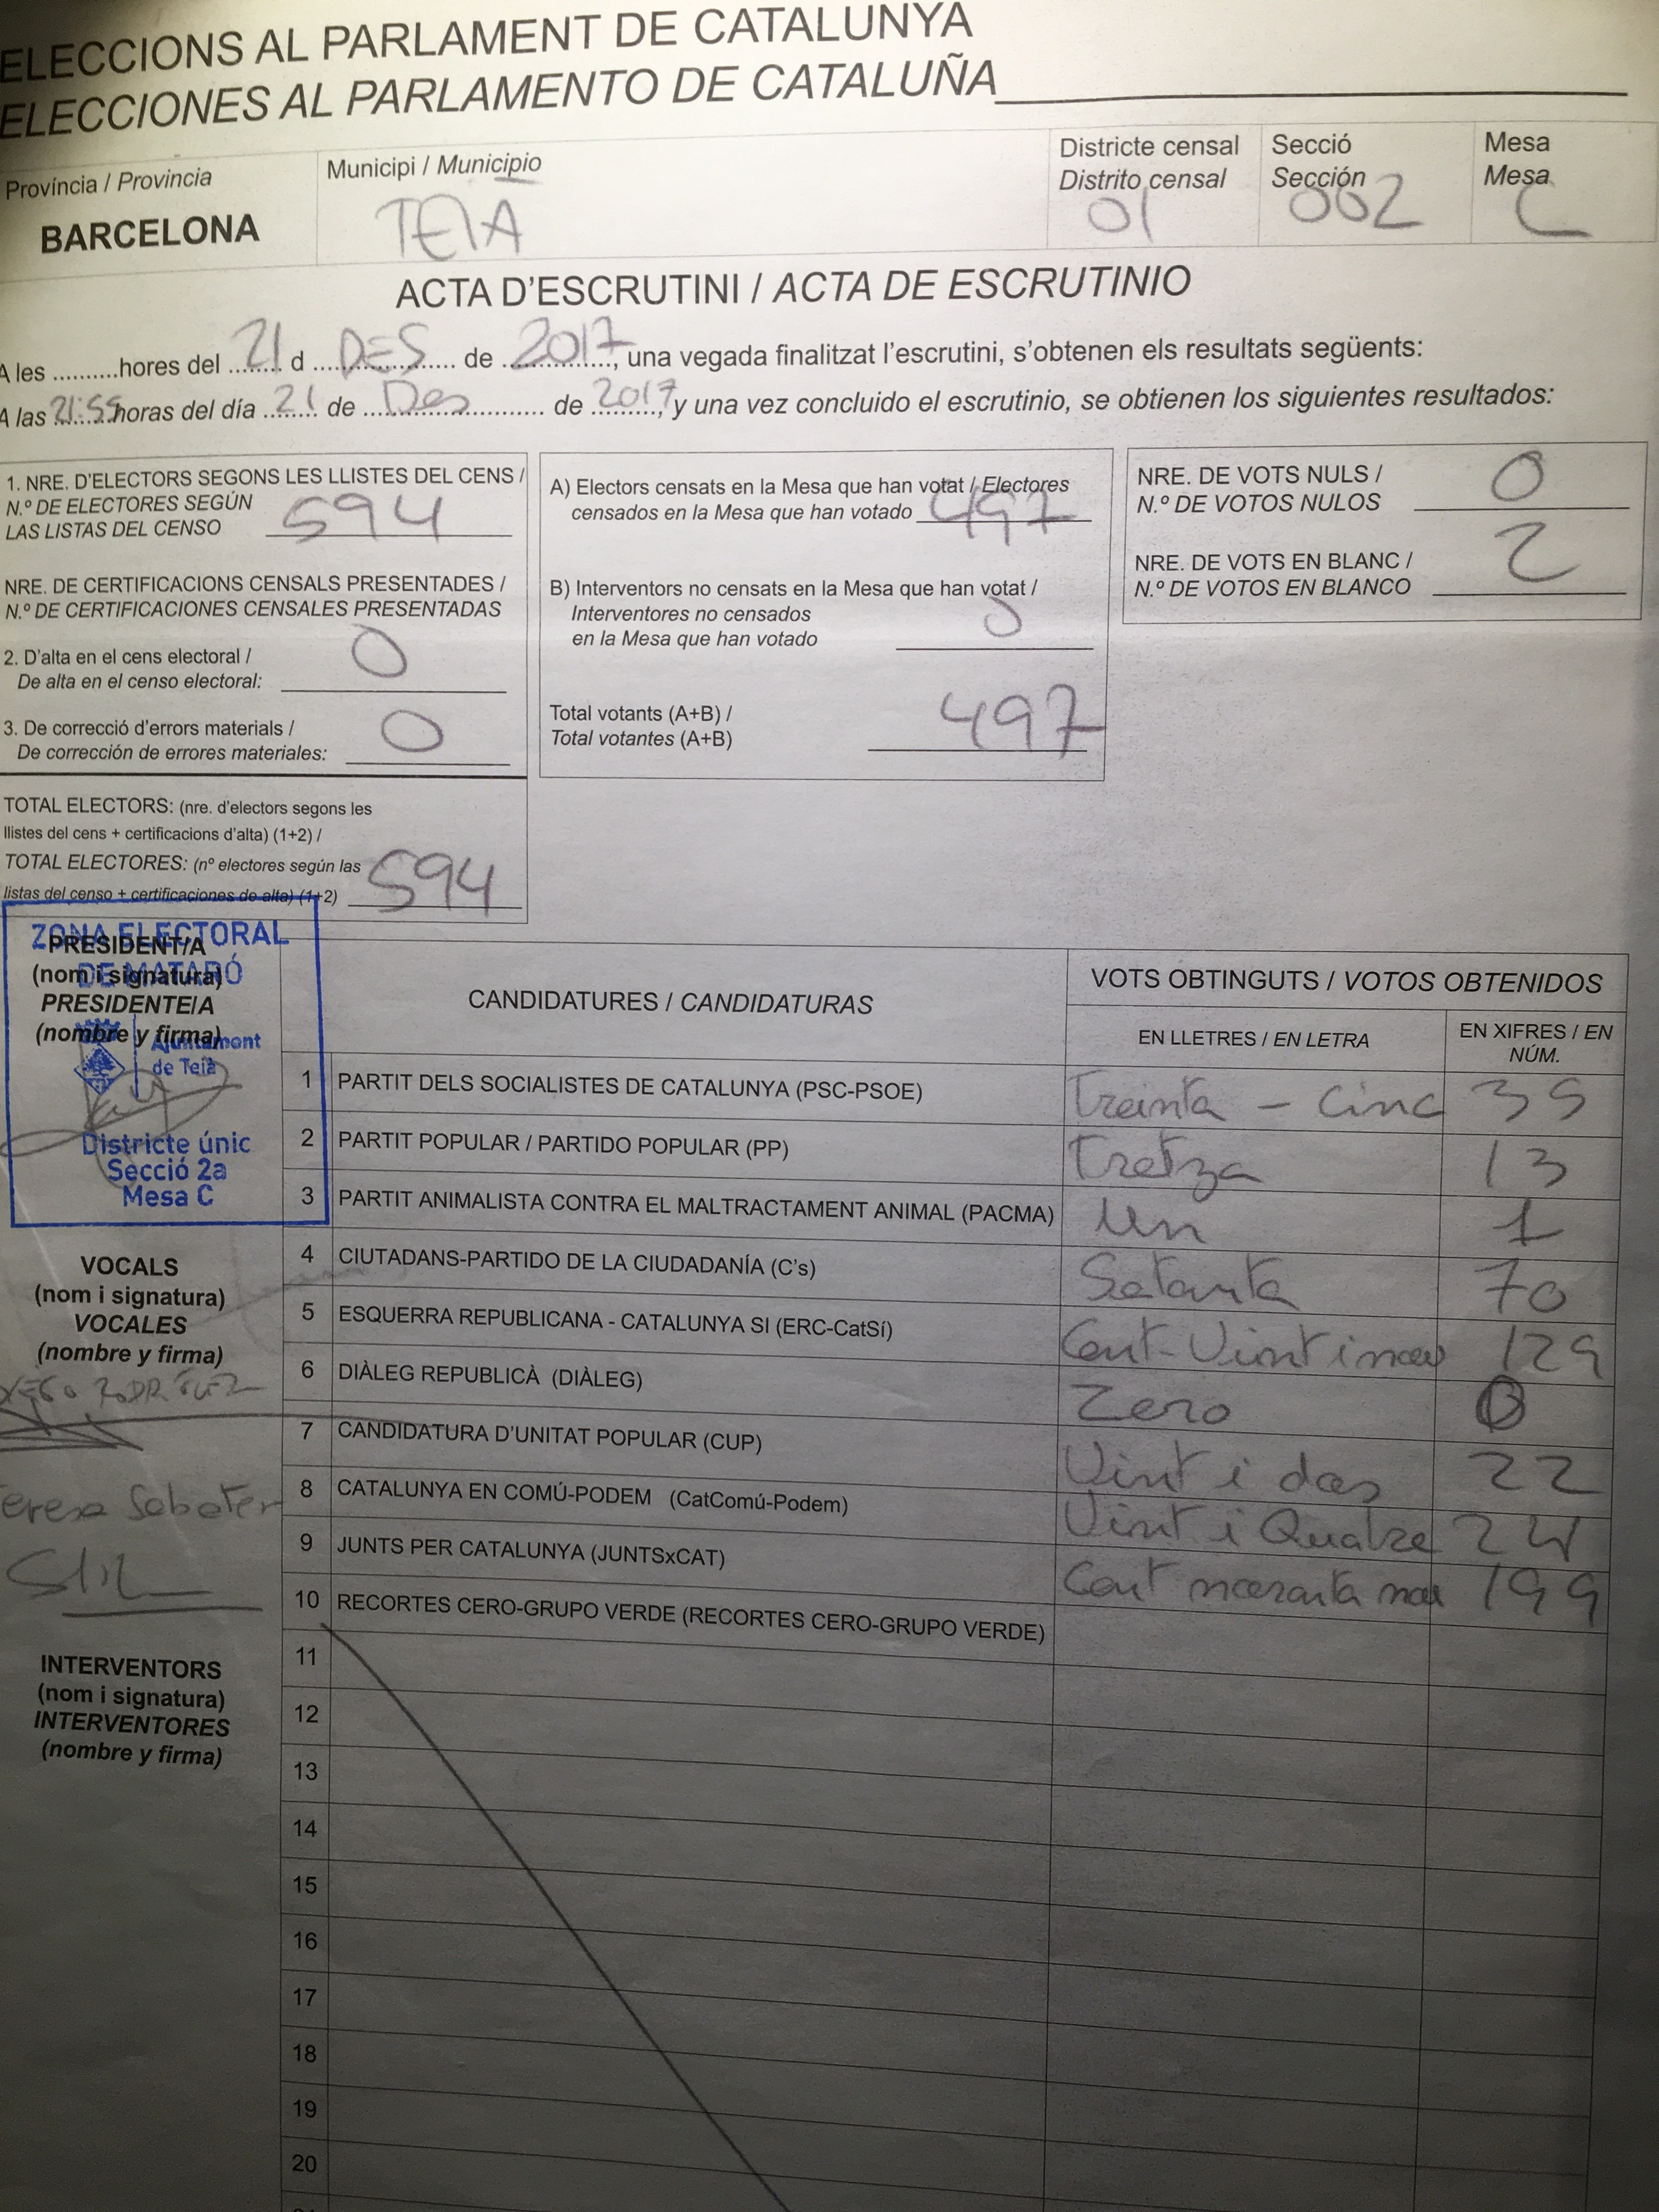 ELECCIONS AL PARLAMENT DE CATALUNYA
ELECCIONES AL PARLAMENTO DE CATALUÑA
Província / Provincia
BARCELONA
Municipi / Municipio
TEIA
Districte censal
Distrito censal
01
Secció
Sección
002
Mesa
Mesa
C
ACTA D'ESCRUTINI / ACTA DE ESCRUTINIO
A les ..........hores del 21 d DES de 2017, una vegada finalitzat l'escrutini, s'obtenen els resultats següents:
A las 21:55 horas del día 21 de Des de 2017, y una vez concluido el escrutinio, se obtienen los siguientes resultados:
1. NRE. D'ELECTORS SEGONS LES LLISTES DEL CENS /
N.º DE ELECTORES SEGÚN
LAS LISTAS DEL CENSO 594
NRE. DE CERTIFICACIONS CENSALS PRESENTADES /
N.º DE CERTIFICACIONES CENSALES PRESENTADAS
2. D'alta en el cens electoral /
De alta en el censo electoral: 0
3. De correcció d'errors materials /
De corrección de errores materiales: 0
TOTAL ELECTORS: (nre. d'electors segons les
llistes del cens + certificacions d'alta) (1+2) /
TOTAL ELECTORES: (nº electores según las
listas del censo + certificaciones de alta) (1+2) 594
A) Electors censats en la Mesa que han votat / Electores
censados en la Mesa que han votado 497
B) Interventors no censats en la Mesa que han votat /
Interventores no censados
en la Mesa que han votado 0
Total votants (A+B) /
Total votantes (A+B) 497
NRE. DE VOTS NULS /
N.º DE VOTOS NULOS 0
NRE. DE VOTS EN BLANC /
N.º DE VOTOS EN BLANCO 2
ZONA ELECTORAL
DE MATARÓ
Ajuntament
de Teià
Districte únic
Secció 2a
Mesa C
PRESIDENT/A
(nom i signatura)
PRESIDENTE/A
(nombre y firma)
VOCALS
(nom i signatura)
VOCALES
(nombre y firma)
RODRÍGUEZ
eresa Sabater
INTERVENTORS
(nom i signatura)
INTERVENTORES
(nombre y firma)
CANDIDATURES / CANDIDATURAS
VOTS OBTINGUTS / VOTOS OBTENIDOS
EN LLETRES / EN LETRA
EN XIFRES / EN
NÚM.
1 PARTIT DELS SOCIALISTES DE CATALUNYA (PSC-PSOE) Treinta - Cinc 35
2 PARTIT POPULAR / PARTIDO POPULAR (PP) Tretza 13
3 PARTIT ANIMALISTA CONTRA EL MALTRACTAMENT ANIMAL (PACMA) Un 1
4 CIUTADANS-PARTIDO DE LA CIUDADANÍA (C's) Setanta 70
5 ESQUERRA REPUBLICANA - CATALUNYA SI (ERC-CatSí) Cent-Vint i nou 129
6 DIÀLEG REPUBLICÀ (DIÀLEG) Zero 0
7 CANDIDATURA D'UNITAT POPULAR (CUP) Vint i dos 22
8 CATALUNYA EN COMÚ-PODEM (CatComú-Podem) Vint i Quatre 24
9 JUNTS PER CATALUNYA (JUNTSxCAT) Cent noranta nou 199
10 RECORTES CERO-GRUPO VERDE (RECORTES CERO-GRUPO VERDE)
11
12
13
14
15
16
17
18
19
20